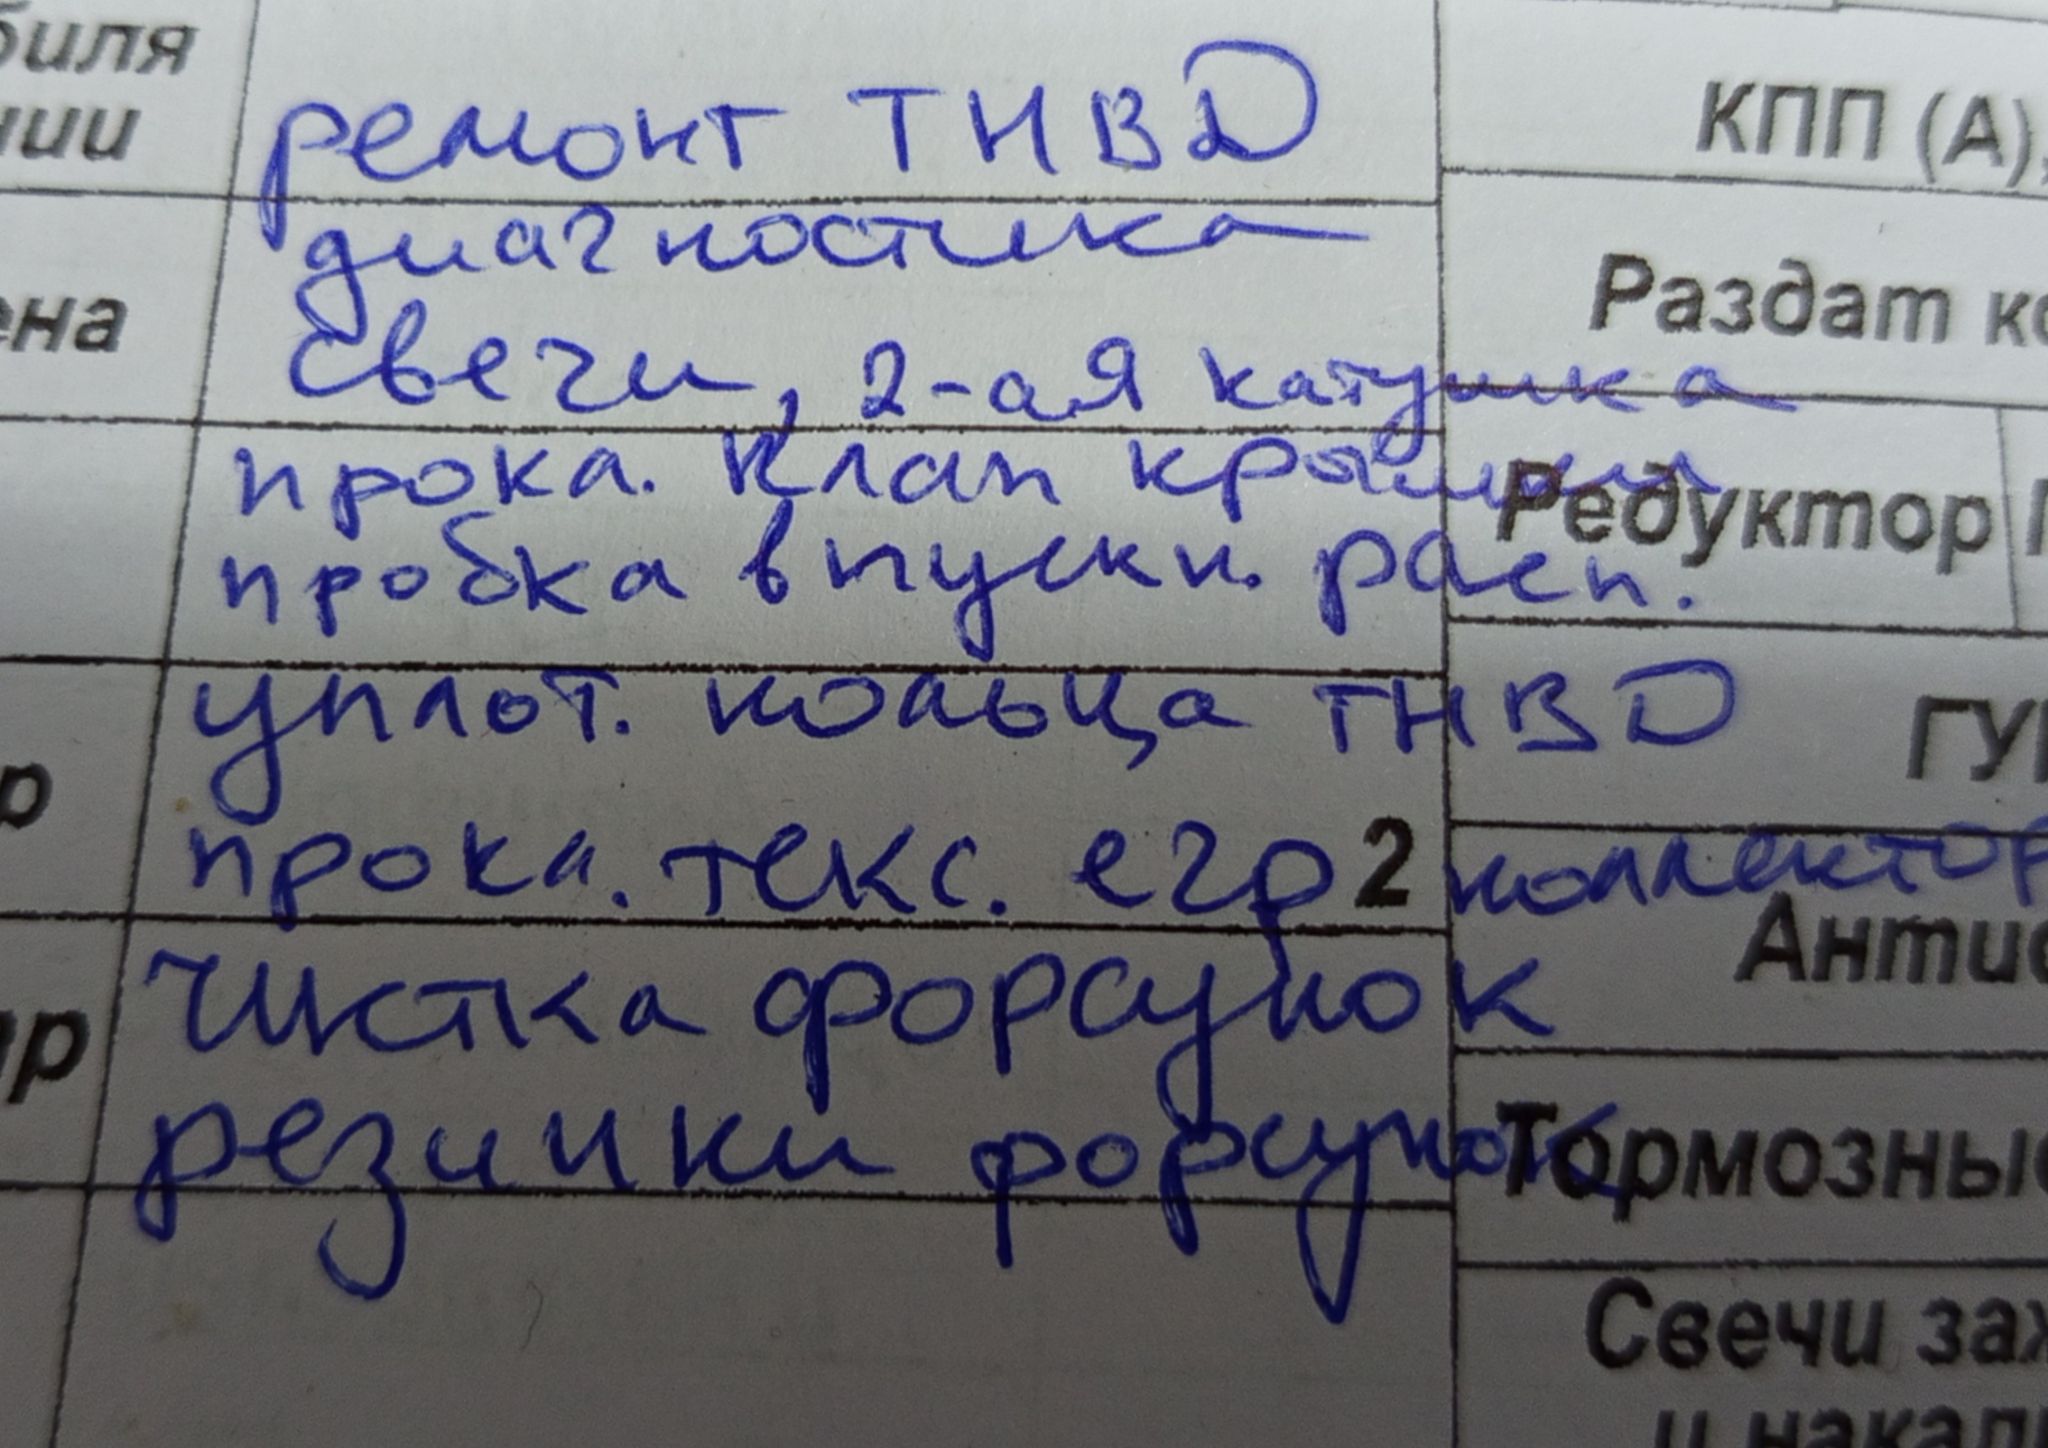 биля
нии
ремонт ТНВД
КПП (А),
диагностика
ена
Раздат ко
свечи, 2-ая катушка
прока. клап крышки
Редуктор
пробка впускн. расп.
уплот. кольца ТНВД
ГУ
р
прока. текс. егр 2 коллектор
Анти
чистка форсунок
ар
резинки форсунок
Тормозные
Свечи заж
и накал